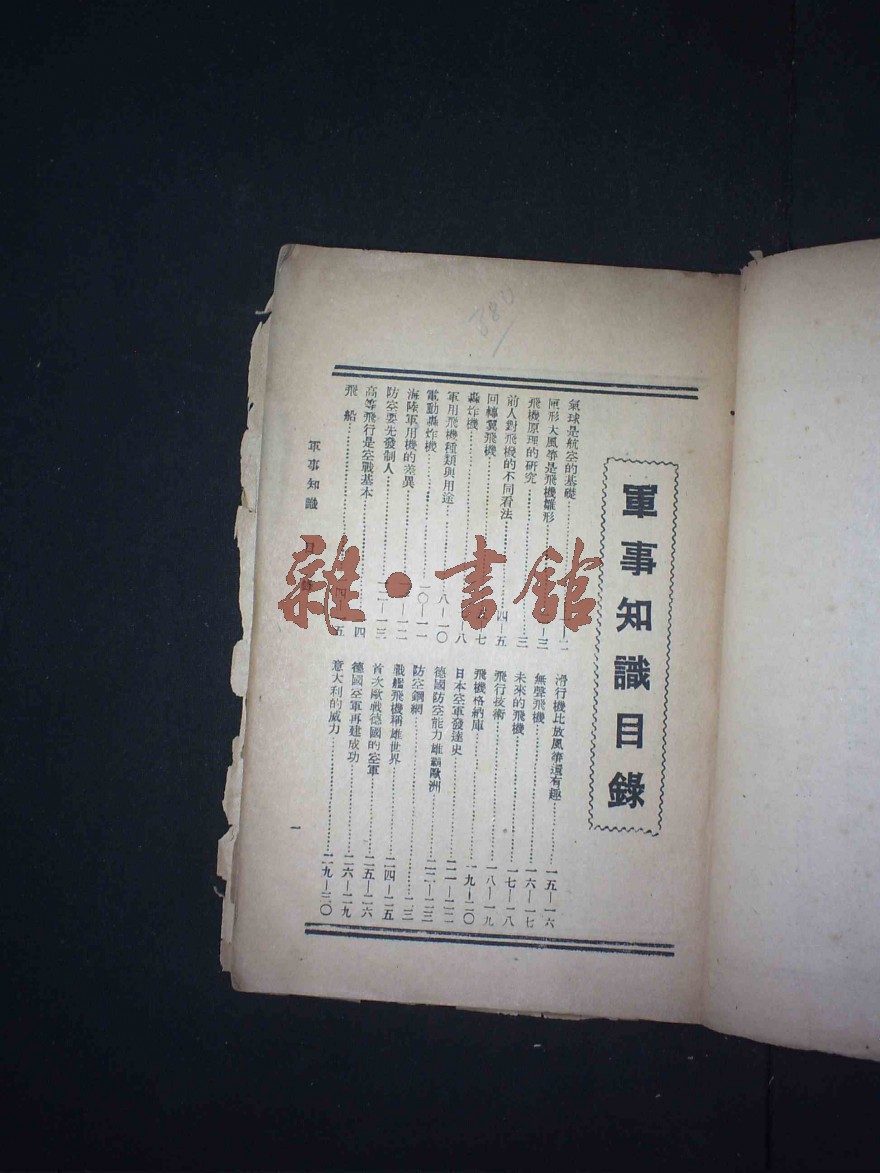 軍事知識目錄
氣球是航空的基礎
匣形大風箏是飛機雛形
飛機原理的研究……三
前人對飛機的不同看法……四—五
回轉翼飛機
轟炸機
軍用飛機種類與用途……八—一〇
電動轟炸機……一〇—一一
海陸軍用機的差異
防空要先發制人……一二—一三
高等飛行是空戰基本
飛船
滑行機比放風箏還有趣……一五—一六
無聲飛機……一六—一七
未來的飛機……一七—一八
飛行技術……一八—一九
飛機格納庫……一九—二〇
日本空軍發達史……二一—二二
德國防空能力雄霸歐洲……二二—二三
防空鋼網……二三
戰艦飛機稱雄世界……二四—二五
首次歐戰德國的空軍……二五—二六
德國空軍再建成功……二六—二九
意大利的威力……二九—三〇
軍事知識 目
一
雜·書館
380